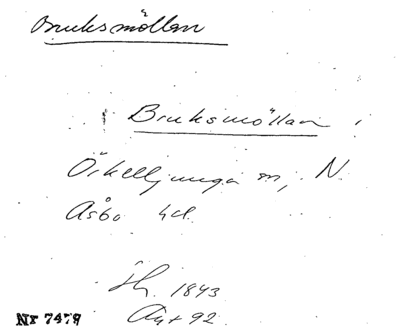 Bruksmöllan
Bruksmöllan
Örkelljunga sn, N.
Åsbo hd.
Hr. 1843
Avt 92
Nr 7479